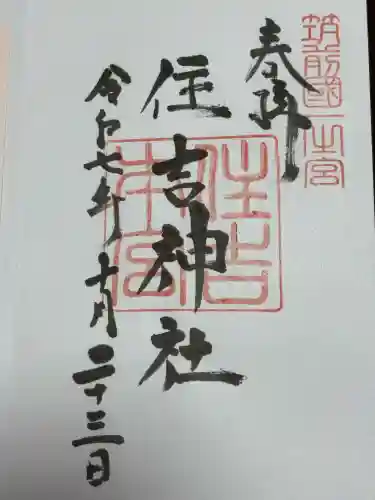 筑前國一之宮
奉拝
住吉神社
令和七年十月二十三日